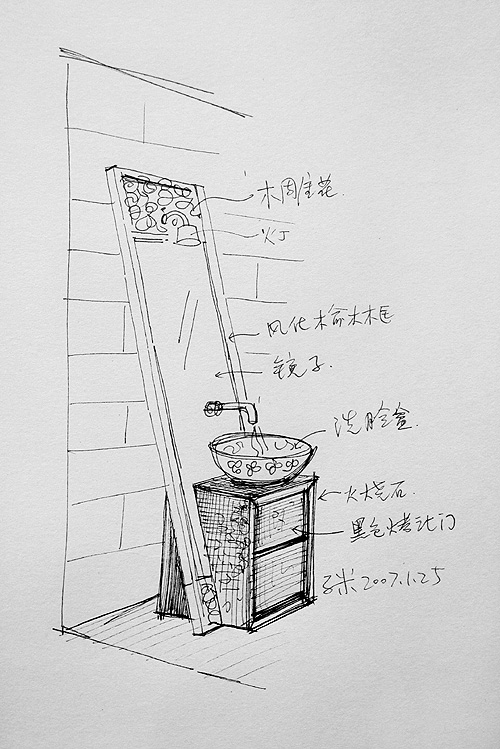 木雕花.
灯
风化榆木框
镜子.
洗脸盆.
火烧石.
黑色烤漆门
子米 2007.1.25